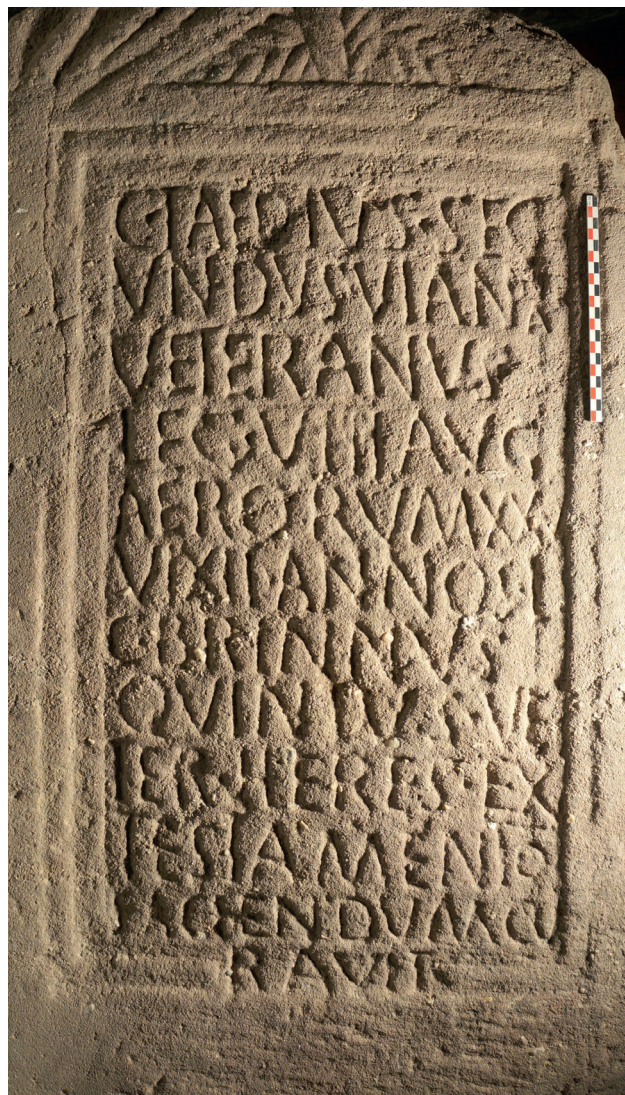 C TAEDIVS SEC
VNDVS VIANA
VETERANVS
LEG VIII AVG
AERORVM XX
VIXIT ANNO
QVINTVS VE
TER HERES EX
TESTAMENTO
FACIENDVM CV
RAVIT